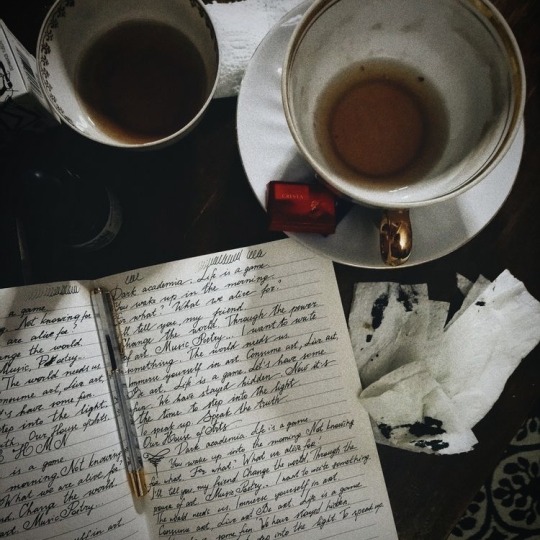 a game.
Not knowing
are alive for?
change the world.
Music Poetry.
The world needs us
consume art, Live art,
Let's have some
step into the light
truth. Our House of Arts.
H M N
is a game.
morning. Not knowing
What we are alive for?
Change the world.
art. Music Poetry...
yourself in art
Dark academia. Life is a game.
You wake up in the morning.
For what? What we alive for?
I'll tell you, my friend.
Change the world. Through the power
of art. Music Poetry... I want to write
something. The world needs us
Immerse yourself in art. Consume art, Live art,
Be art. Life is a game. Let's have some
fun. We have stayed hidden. Now it's
the time to step into the light
To speak up. Speak the truth
Our House of Arts
Dark academia. Life is a game.
You wake up into the morning. Not knowing
for what. For what? What us alive for?
I'll tell you, my friend. Change the world. Through the
power of art. Music Poetry... I want to write something.
The world needs us. Immerse yourself in art.
Consume art, Live art. Be art. Life is a game.
Let's have some fun. We have stayed hidden.
step into the light. To speak up